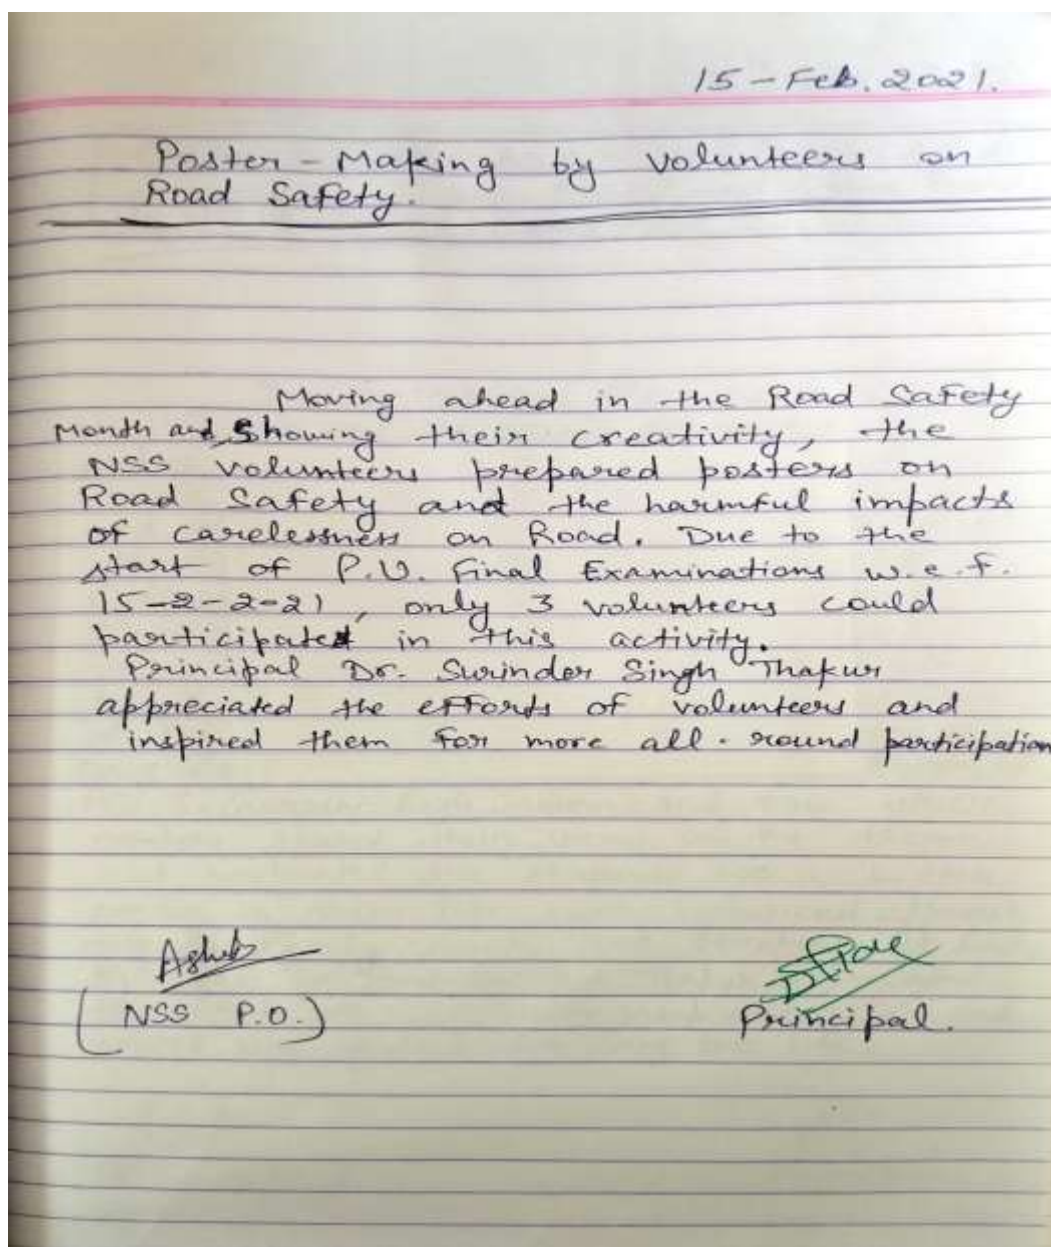 15-Feb. 2021.
Poster-Making by volunteers on
Road Safety.
Moving ahead in the Road Safety
Month and Showing their creativity, the
NSS volunteers prepared posters on
Road Safety and the harmful impacts
of carelessness on Road. Due to the
start of P.U. Final Examinations w.e.f.
15-2-2-21, only 3 volunteers could
participated in this activity.
Principal Dr. Surinder Singh Thakur
appreciated the efforts of volunteers and
inspired them for more all-round participation
(NSS P.O.)
Principal.